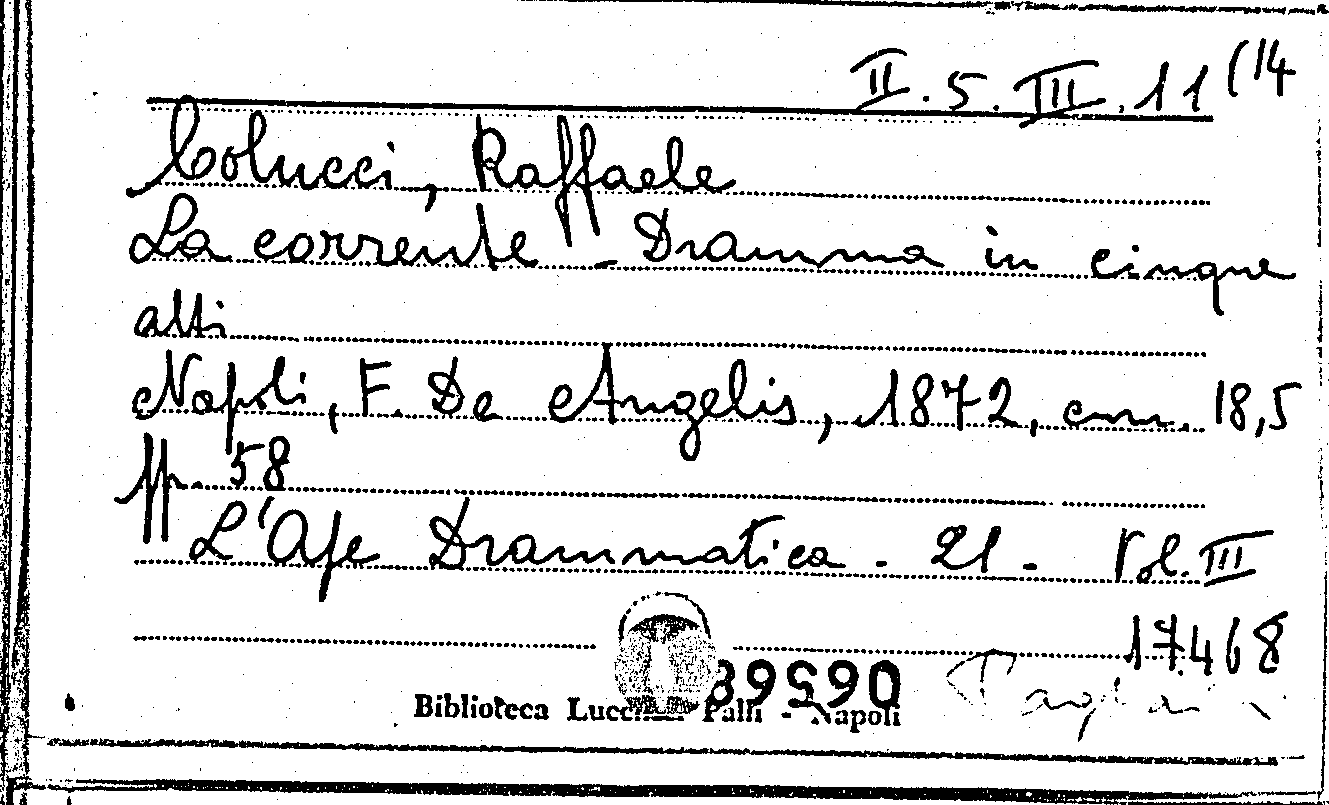 II. 5. III. 11 (14
Colucci, Raffaele
La corrente - Dramma in cinque
atti
Napoli, F. De Angelis, 1872, cm. 18,5
pp. 58
L'Ape Drammatica - 21 - Vol. III
17468
Biblioteca Lucchesi Palli - Napoli